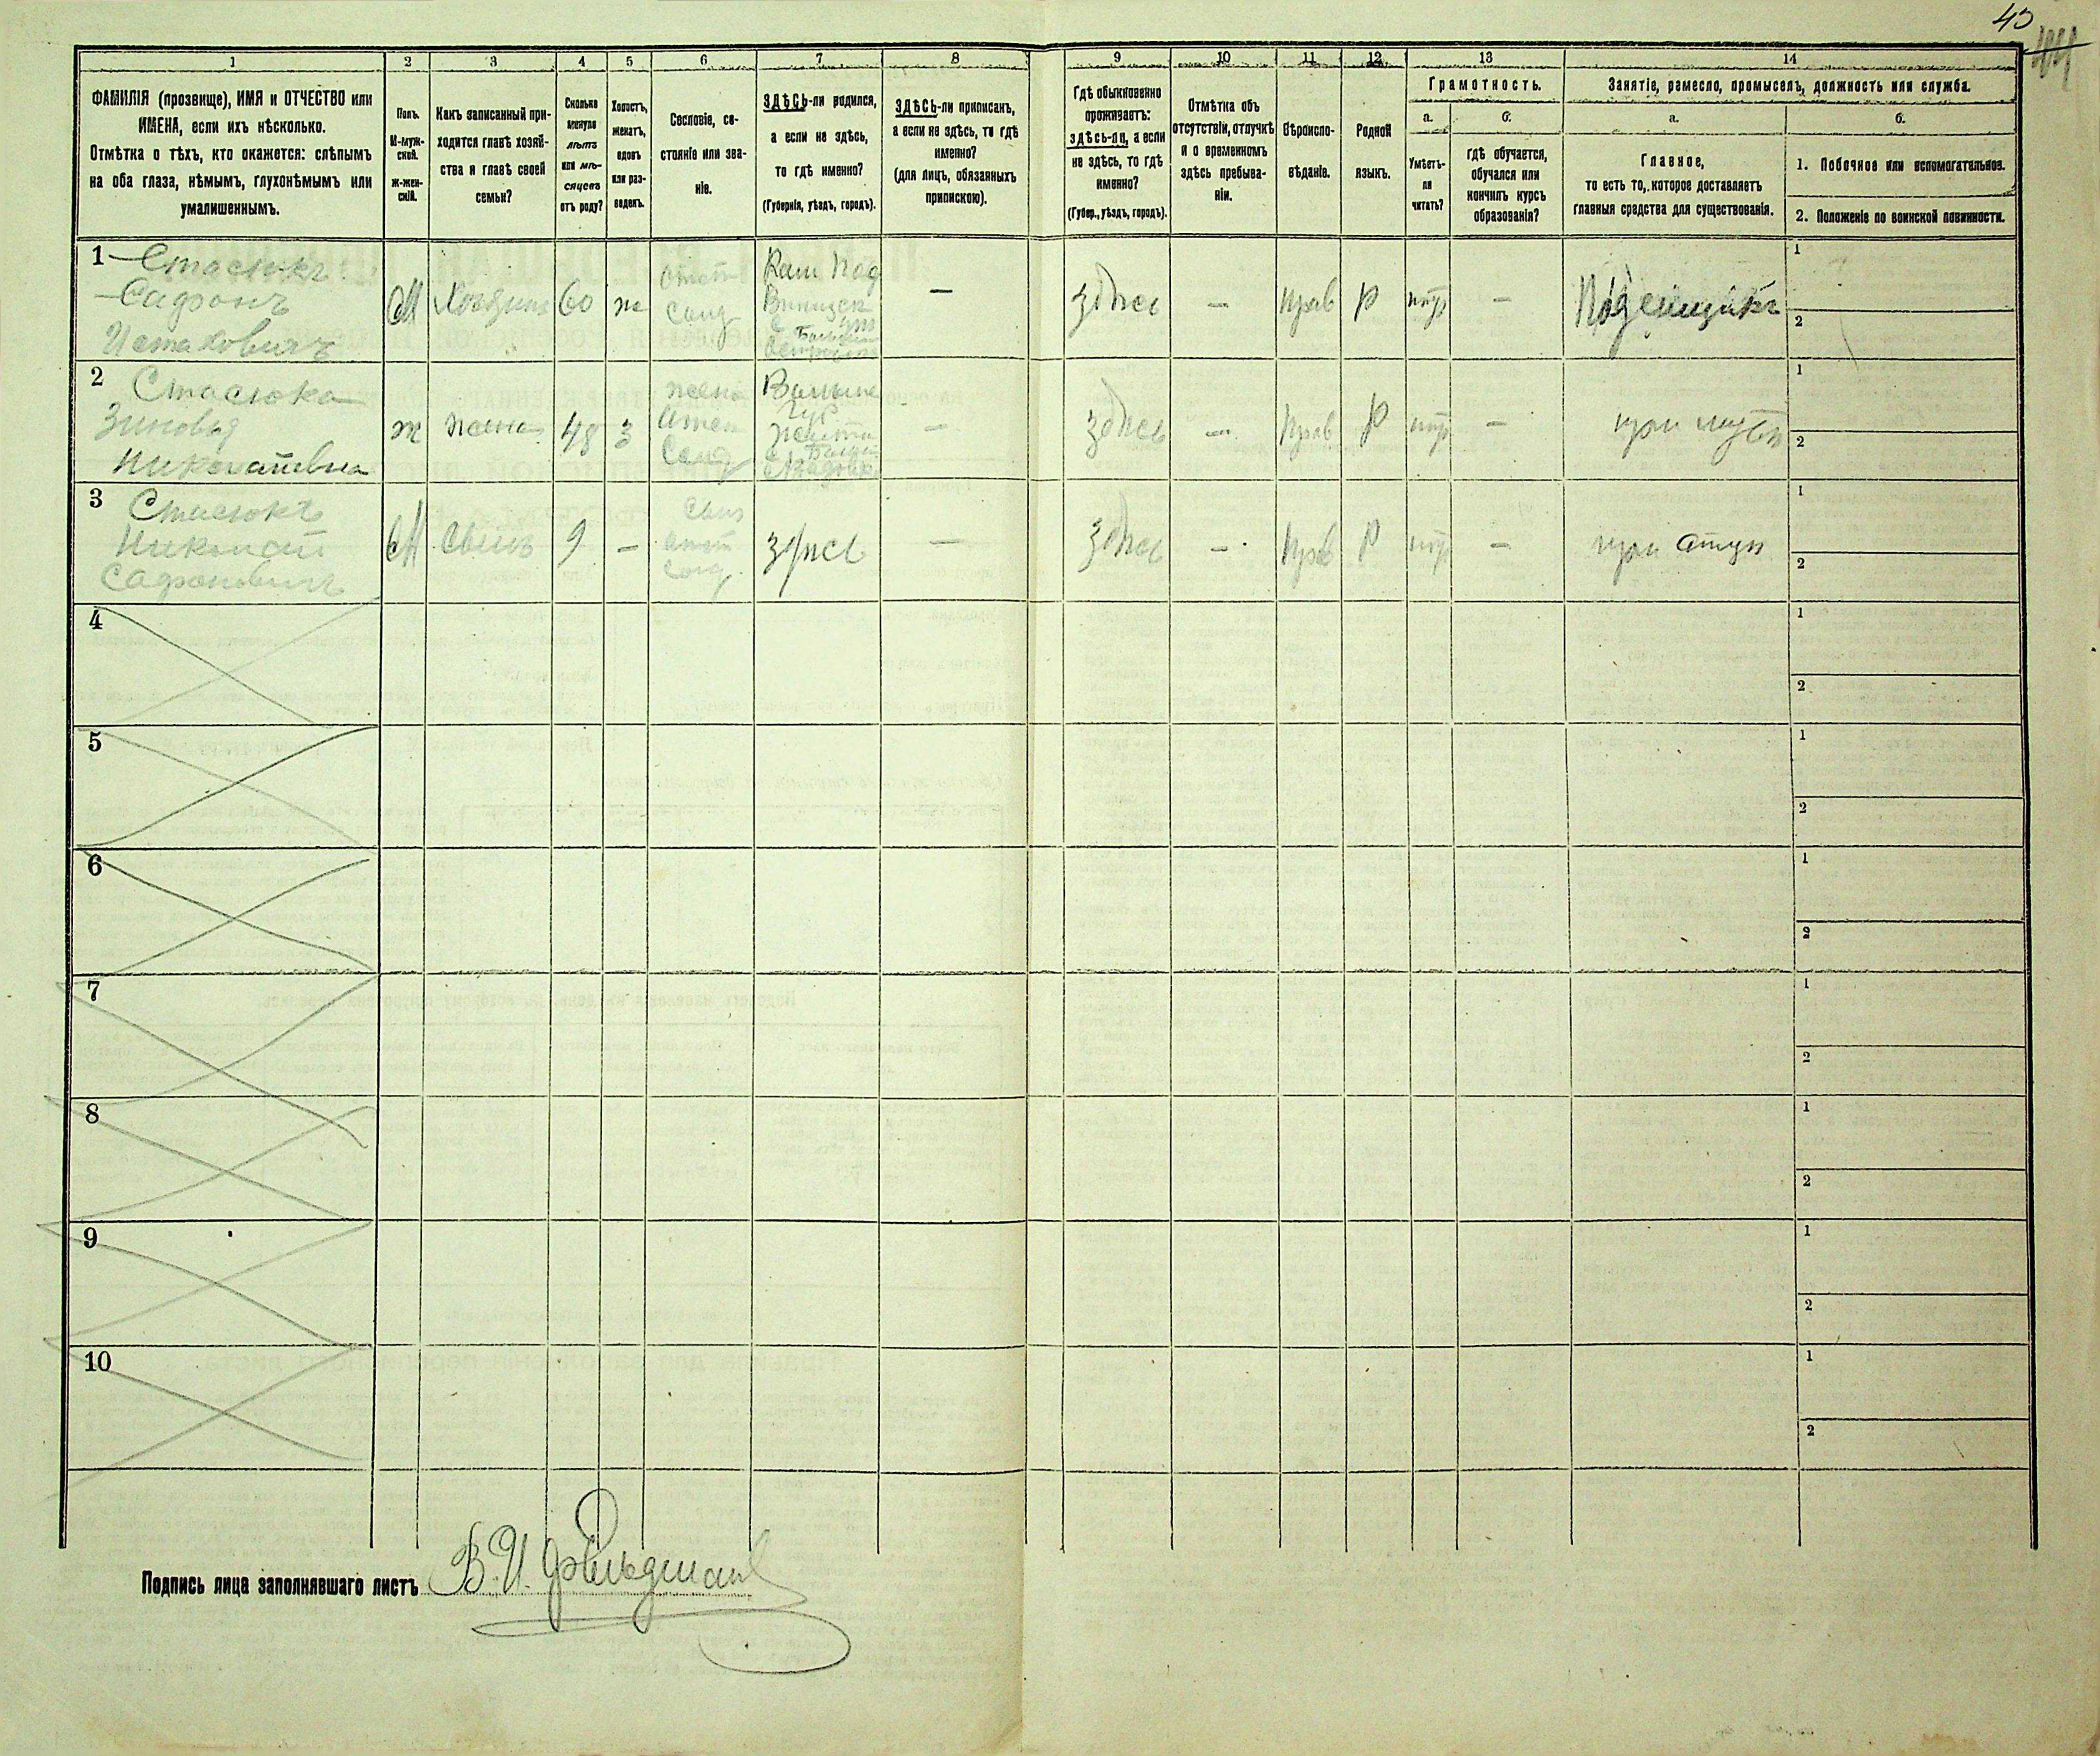 45
44
1 2 3 4 5 6 7 8 9 10 11 12 13 14
ФАМИЛІЯ (прозвище), ИМЯ и ОТЧЕСТВО или
ИМЕНА, если ихъ нѣсколько.
Отмѣтка о тѣхъ, кто окажется: слѣпымъ
на оба глаза, нѣмымъ, глухонѣмымъ или
умалишеннымъ.
Полъ.
М-муж-
ской.
Ж-жен-
скій.
Какъ записанный при-
ходится главѣ хозяй-
ства и главѣ своей
семьи?
Сколько
минуло
лѣтъ
или мѣ-
сяцевъ
отъ роду?
Холостъ,
женатъ,
вдовъ
или раз-
веденъ.
Сословіе, со-
стояніе или зва-
ніе.
ЗДѢСЬ-ли родился,
а если не здѣсь,
то гдѣ именно?
(Губернія, уѣздъ, городъ).
ЗДѢСЬ-ли приписанъ,
а если не здѣсь, то гдѣ
именно?
(для лицъ, обязанныхъ
припискою).
Гдѣ обыкновенно
проживаетъ:
здѣсь-ли, а если
не здѣсь, то гдѣ
именно?
(Губер., уѣздъ, городъ).
Отмѣтка объ
отсутствіи, отлучкѣ
и о временномъ
здѣсь пребыва-
ніи.
Вѣроиспо-
вѣданіе.
Родной
языкъ.
Грамотность.
а.
Умѣетъ-
ли
читать?
б.
гдѣ обучается,
обучался или
кончилъ курсъ
образованія?
Занятіе, ремесло, промыселъ, должность или служба.
а.
Главное,
то есть то, которое доставляетъ
главныя средства для существованія.
б.
1. Побочное или вспомогательное.
2. Положеніе по воинской повинности.
1
Стасюкъ
Сафонъ
М
60
ж
Отст
Солд
Кам Под
—
здѣсь
—
прав
Р
—
Поденщикъ
1
2
2
Стасюка
Зиновья
Николаевна
ж
жена
48
З
жена
Солд
—
здѣсь
—
прав
Р
—
при мужѣ
1
2
3
Стасюкъ
Николай
Сафоновичъ
М
сынъ
9
—
сынъ
Солд
здѣсь
—
здѣсь
—
прав
Р
—
при отцѣ
1
2
4
1
2
5
1
2
6
1
2
7
1
2
8
1
2
9
1
2
10
1
2
Подпись лица заполнявшаго листъ В. И. Фельдман